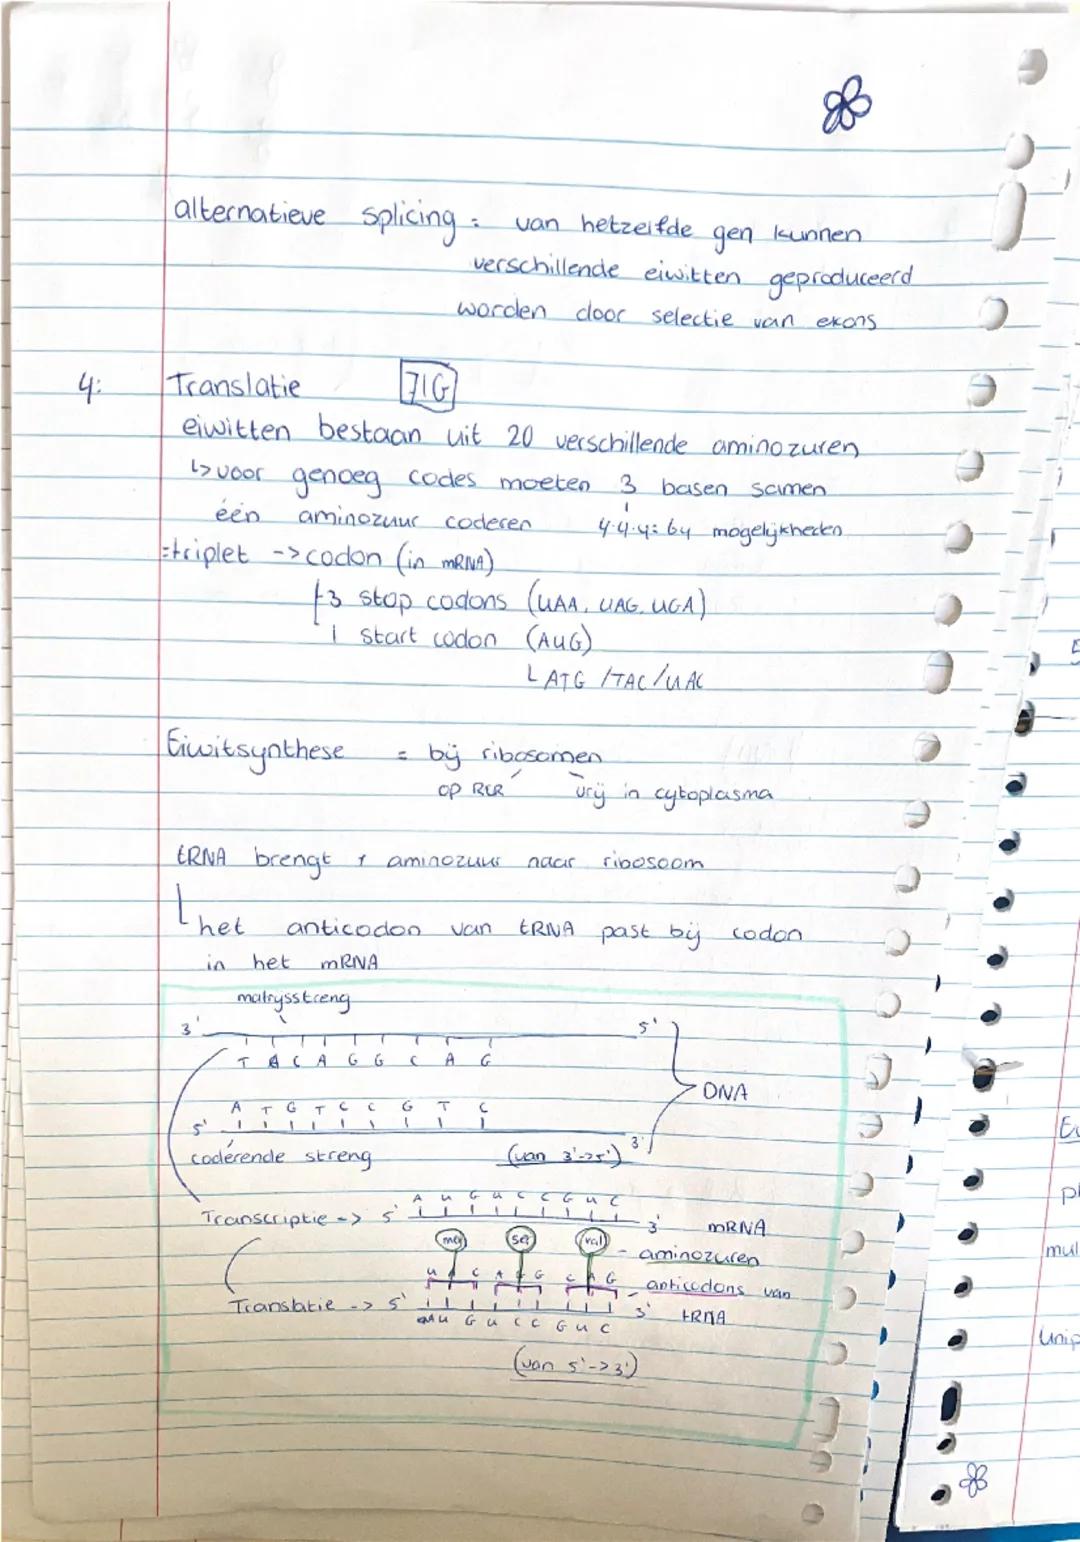 alternatieve splicing = van hetzelfde gen kunnen
verschillende eiwitten geproduceerd
worden door selectie van exons
4: Translatie 71G
eiwitten bestaan uit 20 verschillende aminozuren
↳ voor genoeg codes moeten 3 basen samen
één aminozuur coderen 4·4·4= 64 mogelijkheden
=triplet -> codon (in mRNA)
3 stop codons (UAA, UAG, UGA)
1 start codon (AUG)
ATG /TAC/UAC
Eiwitsynthese = bij ribosomen
op RER vrij in cytoplasma
tRNA brengt 1 aminozuur naar ribosoom
het anticodon van tRNA past bij codon
in het mRNA
matrijsstreng
3' 5'
T A C A G G C A G
DNA
A T G T C C G T C
5' 3'
coderende streng (van 3'->5')
A U G U C C G U C
Transcriptie -> 5' 3' mRNA
met ser val - aminozuren
U A C A G G C A G - anticodons van
Translatie -> 5' 3' tRNA
A U G U C C G U C
(van 5'->3')